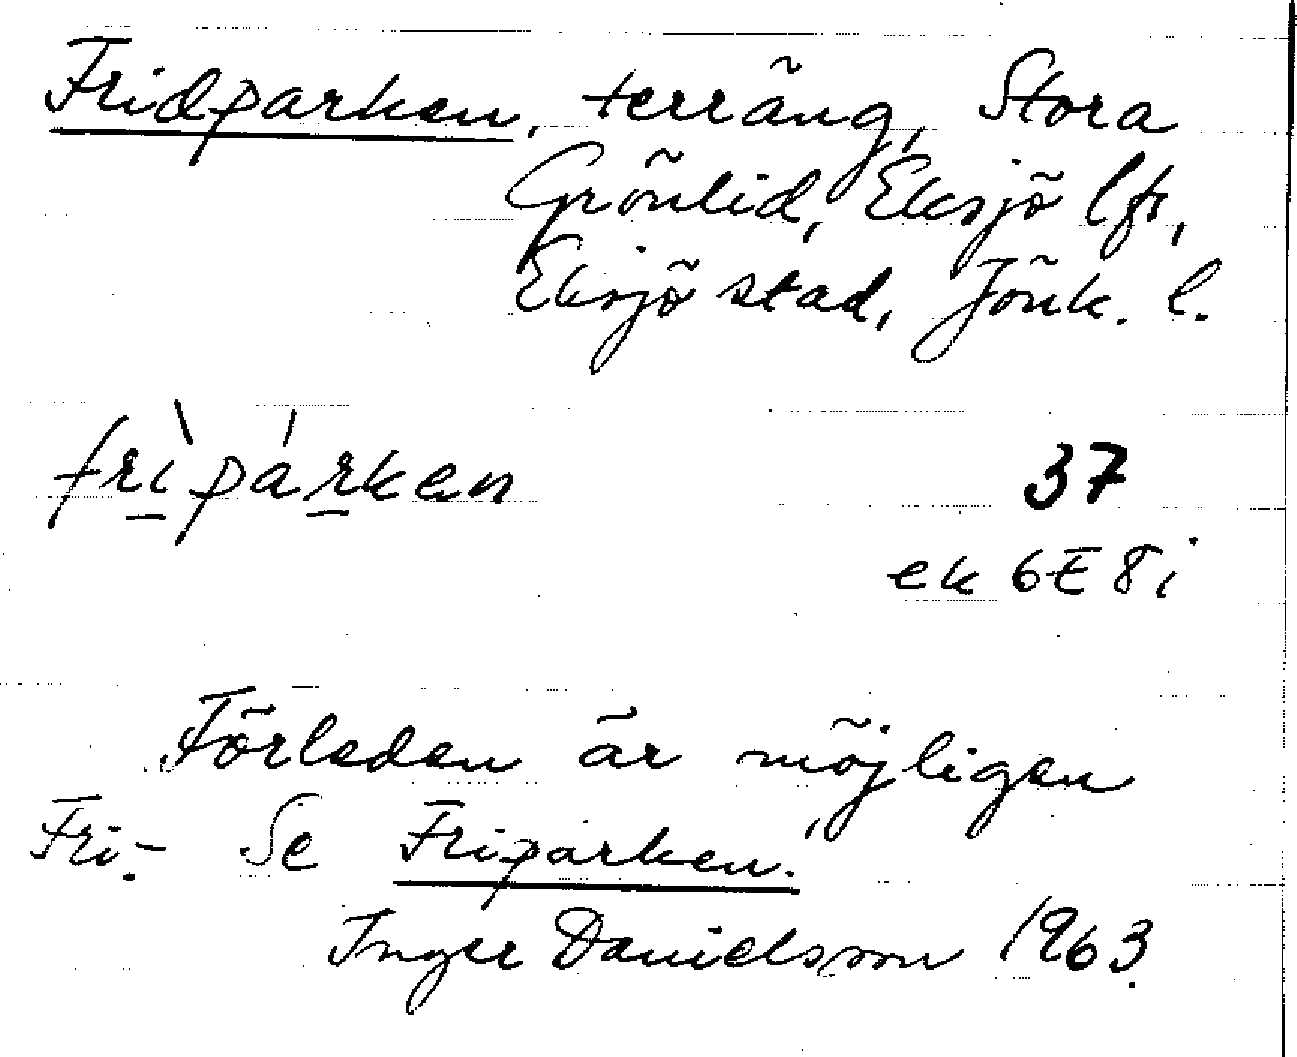 Fridparken, terräng, Stora
Grönlid, Eksjö lfs,
Eksjö stad, Jönk. l.
frìpárken
37
ek 6E 8i
Förleden är möjligen
Fri-. Se Friparken.
Inger Danielsson 1963.